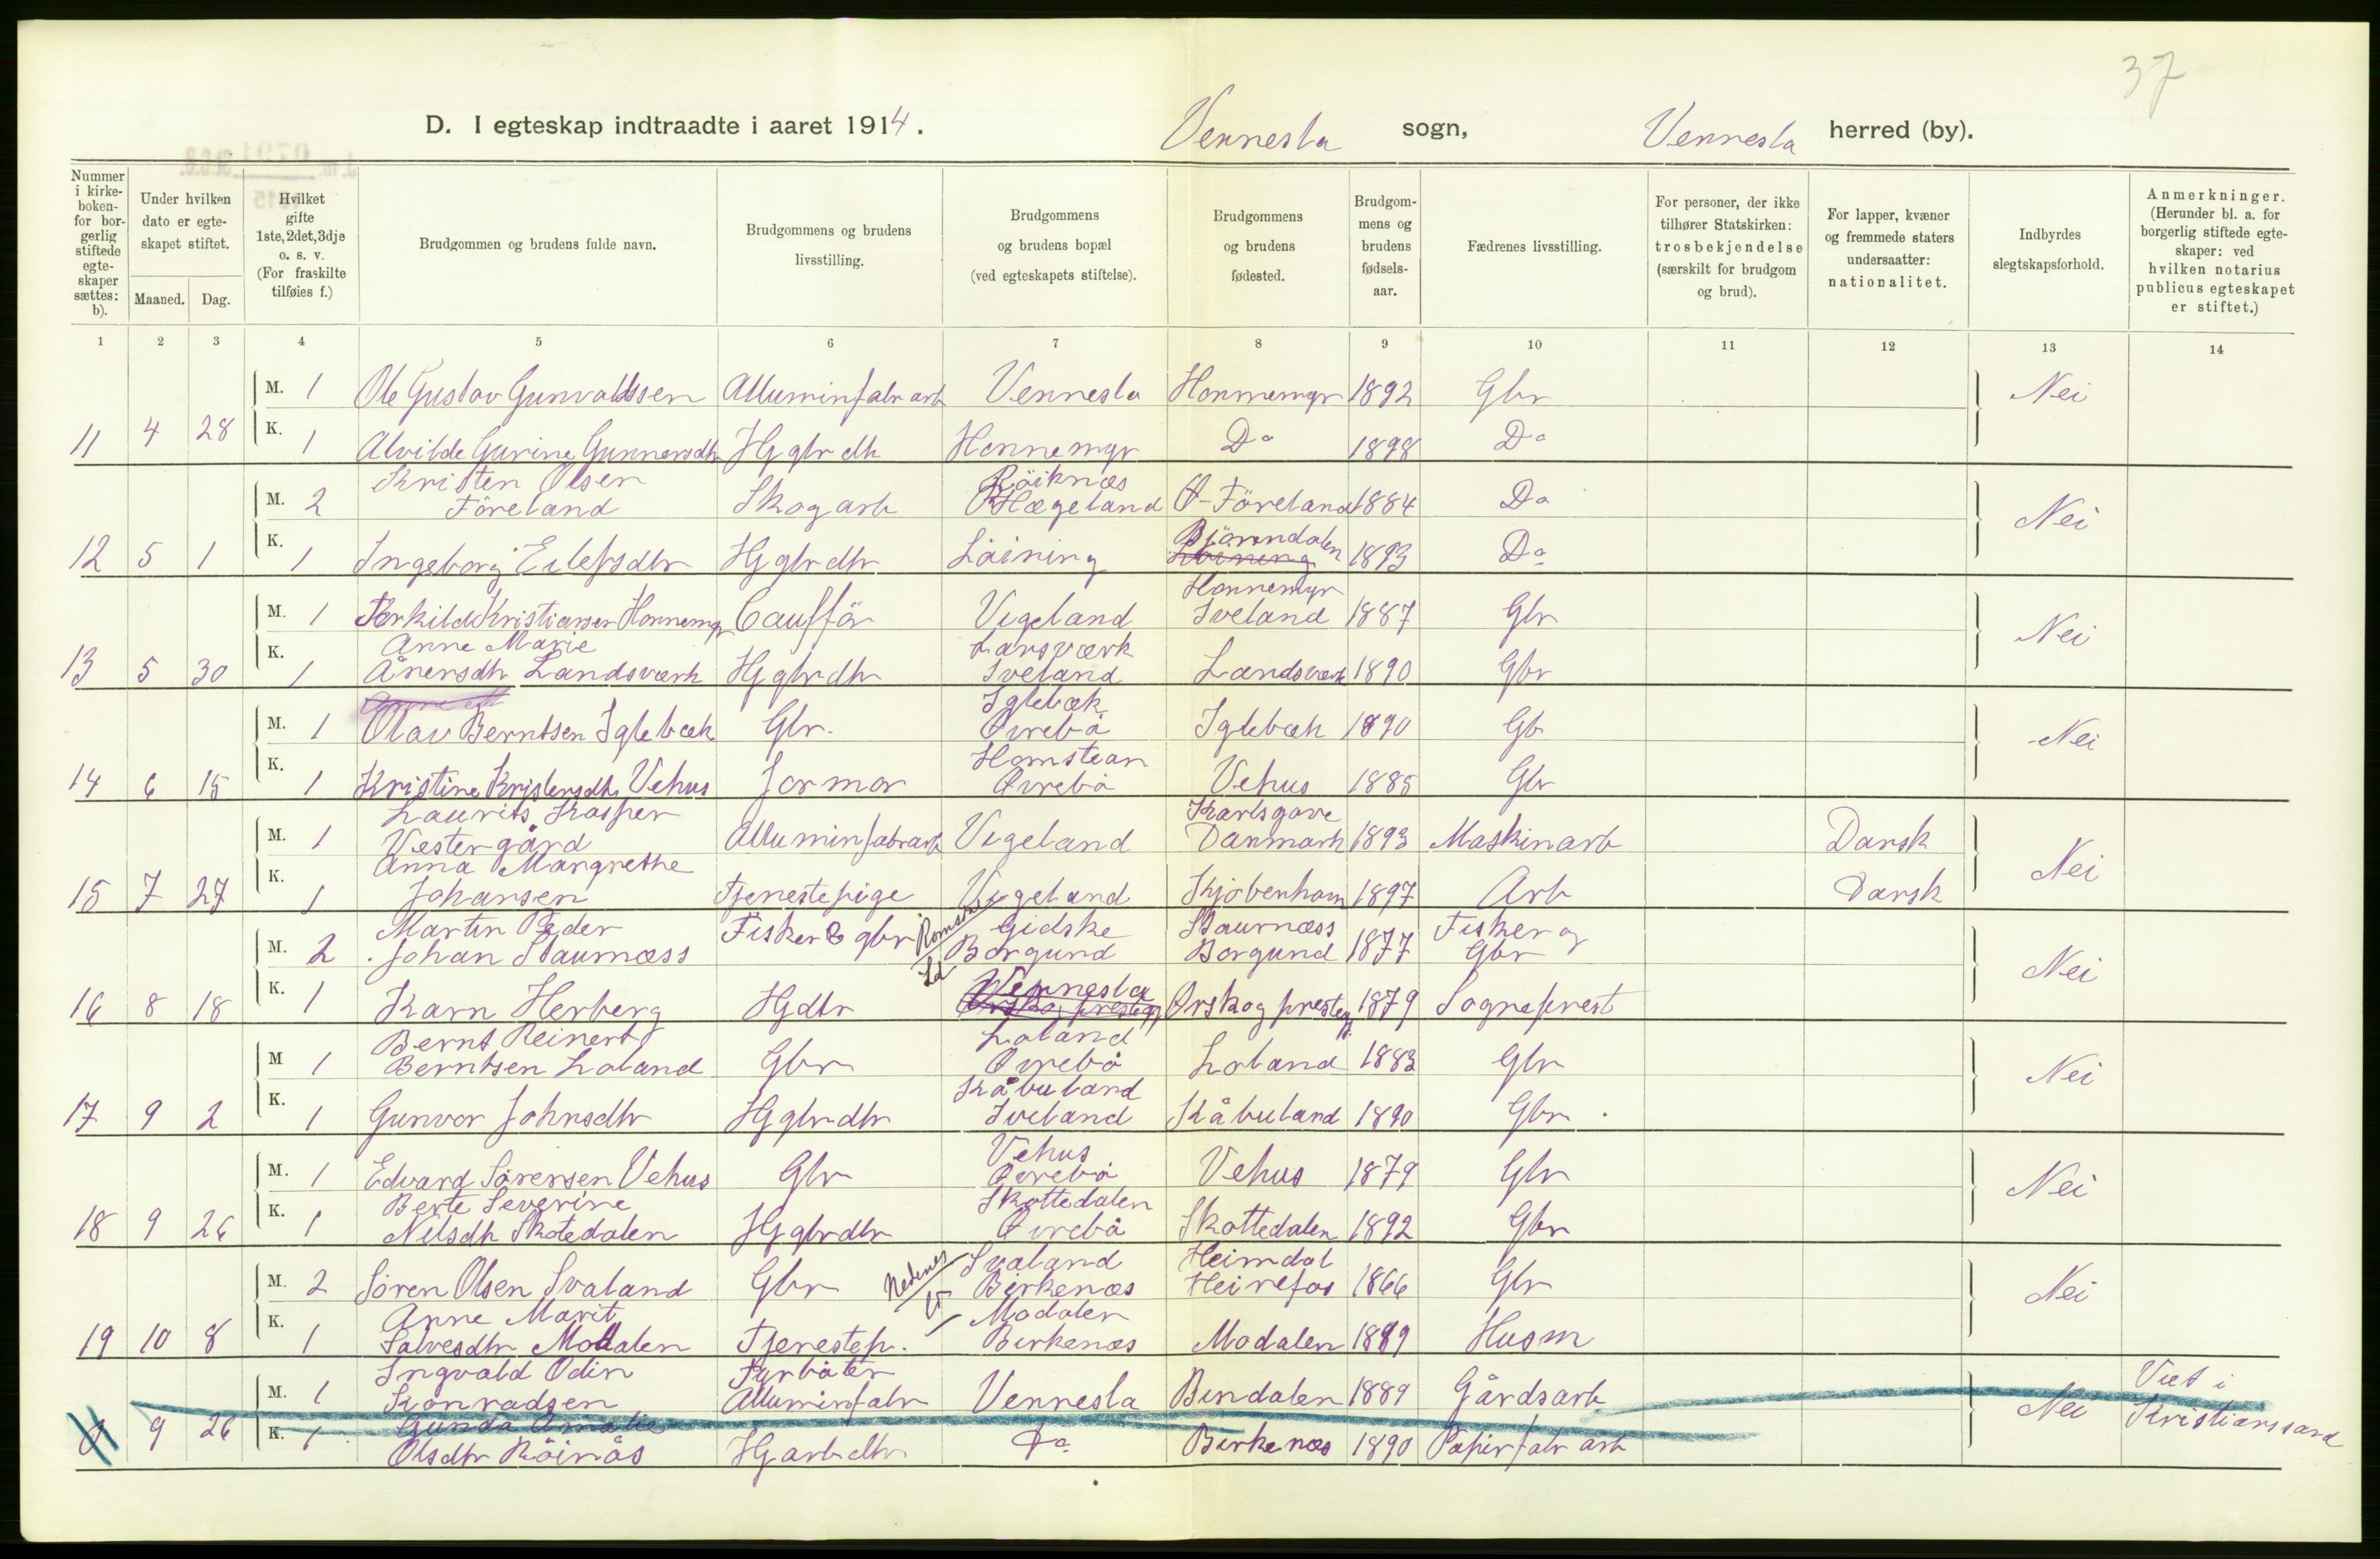 37
D. I egteskap indtraadte i aaret 1914. Vennesla sogn, Vennesla herred (by).
Nummer i kirke-boken- for bor-gerlig stiftede egte-skaper sættes: b).
Under hvilken dato er egte-skapet stiftet.
Maaned. Dag.
Hvilket gifte 1ste, 2det, 3dje o. s. v. (For fraskilte tilføies f.)
Brudgommen og brudens fulde navn.
Brudgommens og brudens livsstilling.
Brudgommens og brudens bopæl (ved egteskapets stiftelse).
Brudgommens og brudens fødested.
Brudgom-mens og brudens fødsels-aar.
Fædrenes livsstilling.
For personer, der ikke tilhører Statskirken: trosbekjendelse (særskilt for brudgom og brud).
For lapper, kvæner og fremmede staters undersaatter: nationalitet.
Indbyrdes slegtskapsforhold.
Anmerkninger. (Herunder bl. a. for borgerlig stiftede egte-skaper: ved hvilken notarius publicus egteskapet er stiftet.)
1 2 3 4 5 6 7 8 9 10 11 12 13 14
M. 1 Ole Gustav Gunvaldssen Alluminfabr arb Vennesla Honnemyr 1892 Gbr Nei
11 4 28 K. 1 Alvilde Gurine Gunnersdtr Hj gbr dtr Honnemyr Do 1898 Do
Kristen Olsen Röiknæs
M. 2 Föreland Skogarb Hægeland Ø-Föreland 1884 Do Nei
Björnndalen
12 5 1 K. 1 Ingeborg Eilefsdtr Hj gbr dtr Läining 1893 Do
Honnemyr
M. 1 Torkild Kristiansen Honnemyr Caufför Vigeland Iveland 1887 Gbr Nei
Anne Marie Larsværk
13 5 30 K. 1 Ånersdtr Landsværk Hj gbr dtr Iveland Landsværk 1890 Gbr
Iglebæk
M. 1 Olav Berntsen Iglebæk Gbr. Øvrebö Iglebæk 1890 Gb Nei
Homstean
14 6 15 K. 1 Kristine Kristensdtr Vehus Jormor Øvrebö Vehus 1885 Gbr
Laurits Kasper Karlsgave
M. 1 Vestergård Alluminfabrarb Vigeland Danmark 1893 Maskinarb Dansk Nei
Anna Margrethe
15 7 27 K. 1 Johansen Tjenestepige Vigeland Kjöbenhavn 1897 Arb Dansk
Martin Peder Romsdal Gidske Staurnæss Fisker og
M. 2 Johan Staurnæss Fisker & gbr Borgund Borgund 1877 Gbr Nei
Vennesla
16 8 18 K. 1 Karn Herberg Hj dtr Ørskog prestegj 1879 Sogneprest
Bernt Reinert Loland
M 1 Berntsen Loland Gbr Øvrebö Loland 1883 Gbr Nei
Kåbuland
17 9 2 K. 1 Gunvor Johnsdtr Hj gbr dtr Iveland Kåbuland 1890 Gbr
Vehus
M. 1 Edvard Sörensen Vehus Gbr Øvrebö Vehus 1879 Gbr Nei
Berte Severine Skottedalen
18 9 26 K. 1 Nilsdtr Skotedalen Hj gbr dtr Øvrebö Skottedalen 1892 Gbr
Nedenes Svaland Heimdal
M. 2 Sören Olsen Svaland Gbr Birkenæs Heirefos 1866 Gbr Nei
Anne Marit Modalen
19 10 8 K. 1 Salvesdtr Modalen Tjenestep. Birkenæs Modalen 1889 Husm
Ingvald Odin Fyrböter Viet i
M. 1 Konradsen Alluminfabr Vennesla Bindalen 1889 Gårdsarb Nei Kristianssand
Gunda Amalie
9 26 K. 1 Olsdtr Röinås Hj arb dtr Do Birkenæs 1890 Papirfabr arb